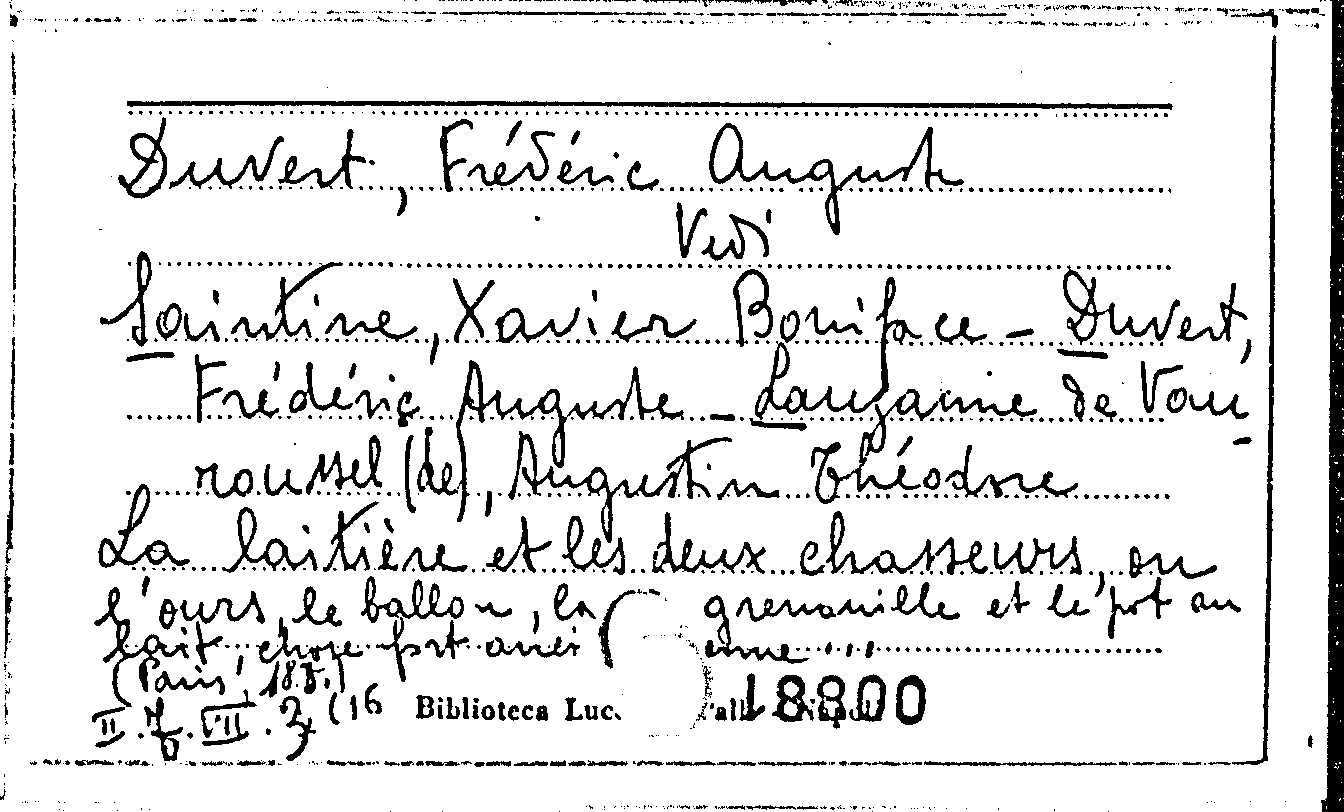 Duvert, Frédéric Auguste
Vedi
Saintine, Xavier Boniface - Duvert,
Frédéric Auguste - Lauzanne de Vau-
roussel (de), Augustin Théodore
La laitière et les deux chasseurs, ou
l'ours, le ballon, la grenouille et le pot au
lait, chose fort anci enne ...
(Paris, 18..)
II. VII. (16
Biblioteca Luc. 18800